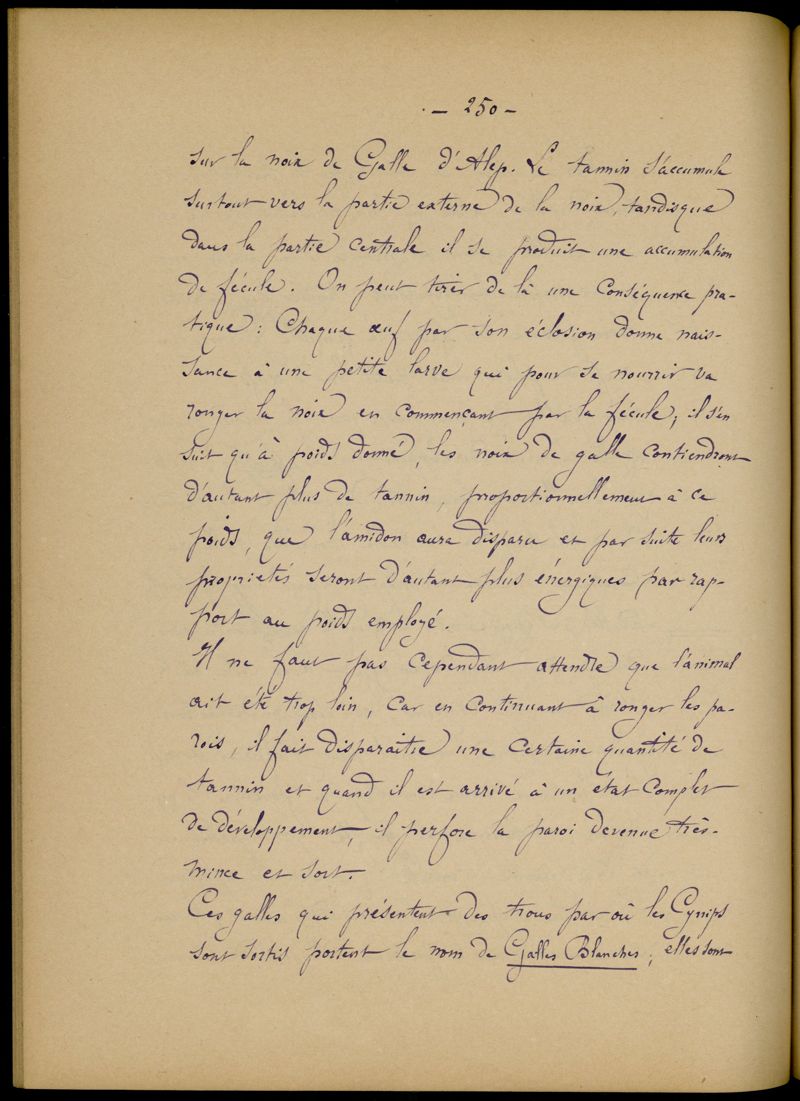 - 250 -
sur la noix de Galle d'Alep. Le tannin s'accumule
surtout vers la partie externe de la noix, tandisque
dans la partie centrale il se produit une accumulation
de fécule. On peut tirer de là une conséquence pra-
tique : Chaque œuf par son éclosion donne nais-
sance à une petite larve qui pour se nourrir va
ronger la noix en commençant par la fécule; il s'en
suit qu'à poids donné, les noix de galle contiendront
d'autant plus de tannin, proportionnellement à ce
poids, que l'amidon aura disparu et par suite leurs
propriétés seront d'autant plus énergiques par rap-
port au poids employé.
Il ne faut pas cependant attendre que l'animal
ait été trop loin, car en continuant à ronger les pa-
rois, il fait disparaître une certaine quantité de
tannin et quand il est arrivé à un état complet
de développement, il perfore la paroi devenue très-
mince et sort.
Ces galles qui présentent des trous par où les Cynips
sont sortis portent le nom de Galles Blanches; elles sont